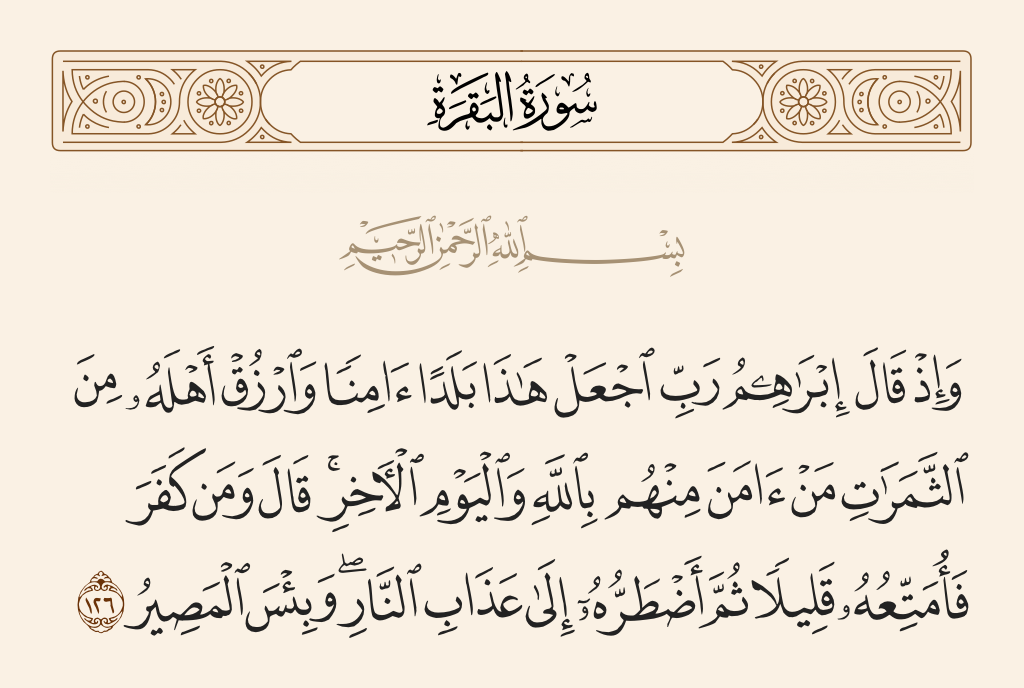 سُورَةُ البَقَرَةِ
بِسْمِ ٱللَّهِ ٱلرَّحْمَٰنِ ٱلرَّحِيمِ
وَإِذْ قَالَ إِبْرَٰهِـۧمُ رَبِّ ٱجْعَلْ هَٰذَا بَلَدًا ءَامِنًا وَٱرْزُقْ أَهْلَهُۥ مِنَ
ٱلثَّمَرَٰتِ مَنْ ءَامَنَ مِنْهُم بِٱللَّهِ وَٱلْيَوْمِ ٱلْأَخِرِ ۚ قَالَ وَمَن كَفَرَ
فَأُمَتِّعُهُۥ قَلِيلًا ثُمَّ أَضْطَرُّهُۥٓ إِلَىٰ عَذَابِ ٱلنَّارِ ۖ وَبِئْسَ ٱلْمَصِيرُ ١٢٦